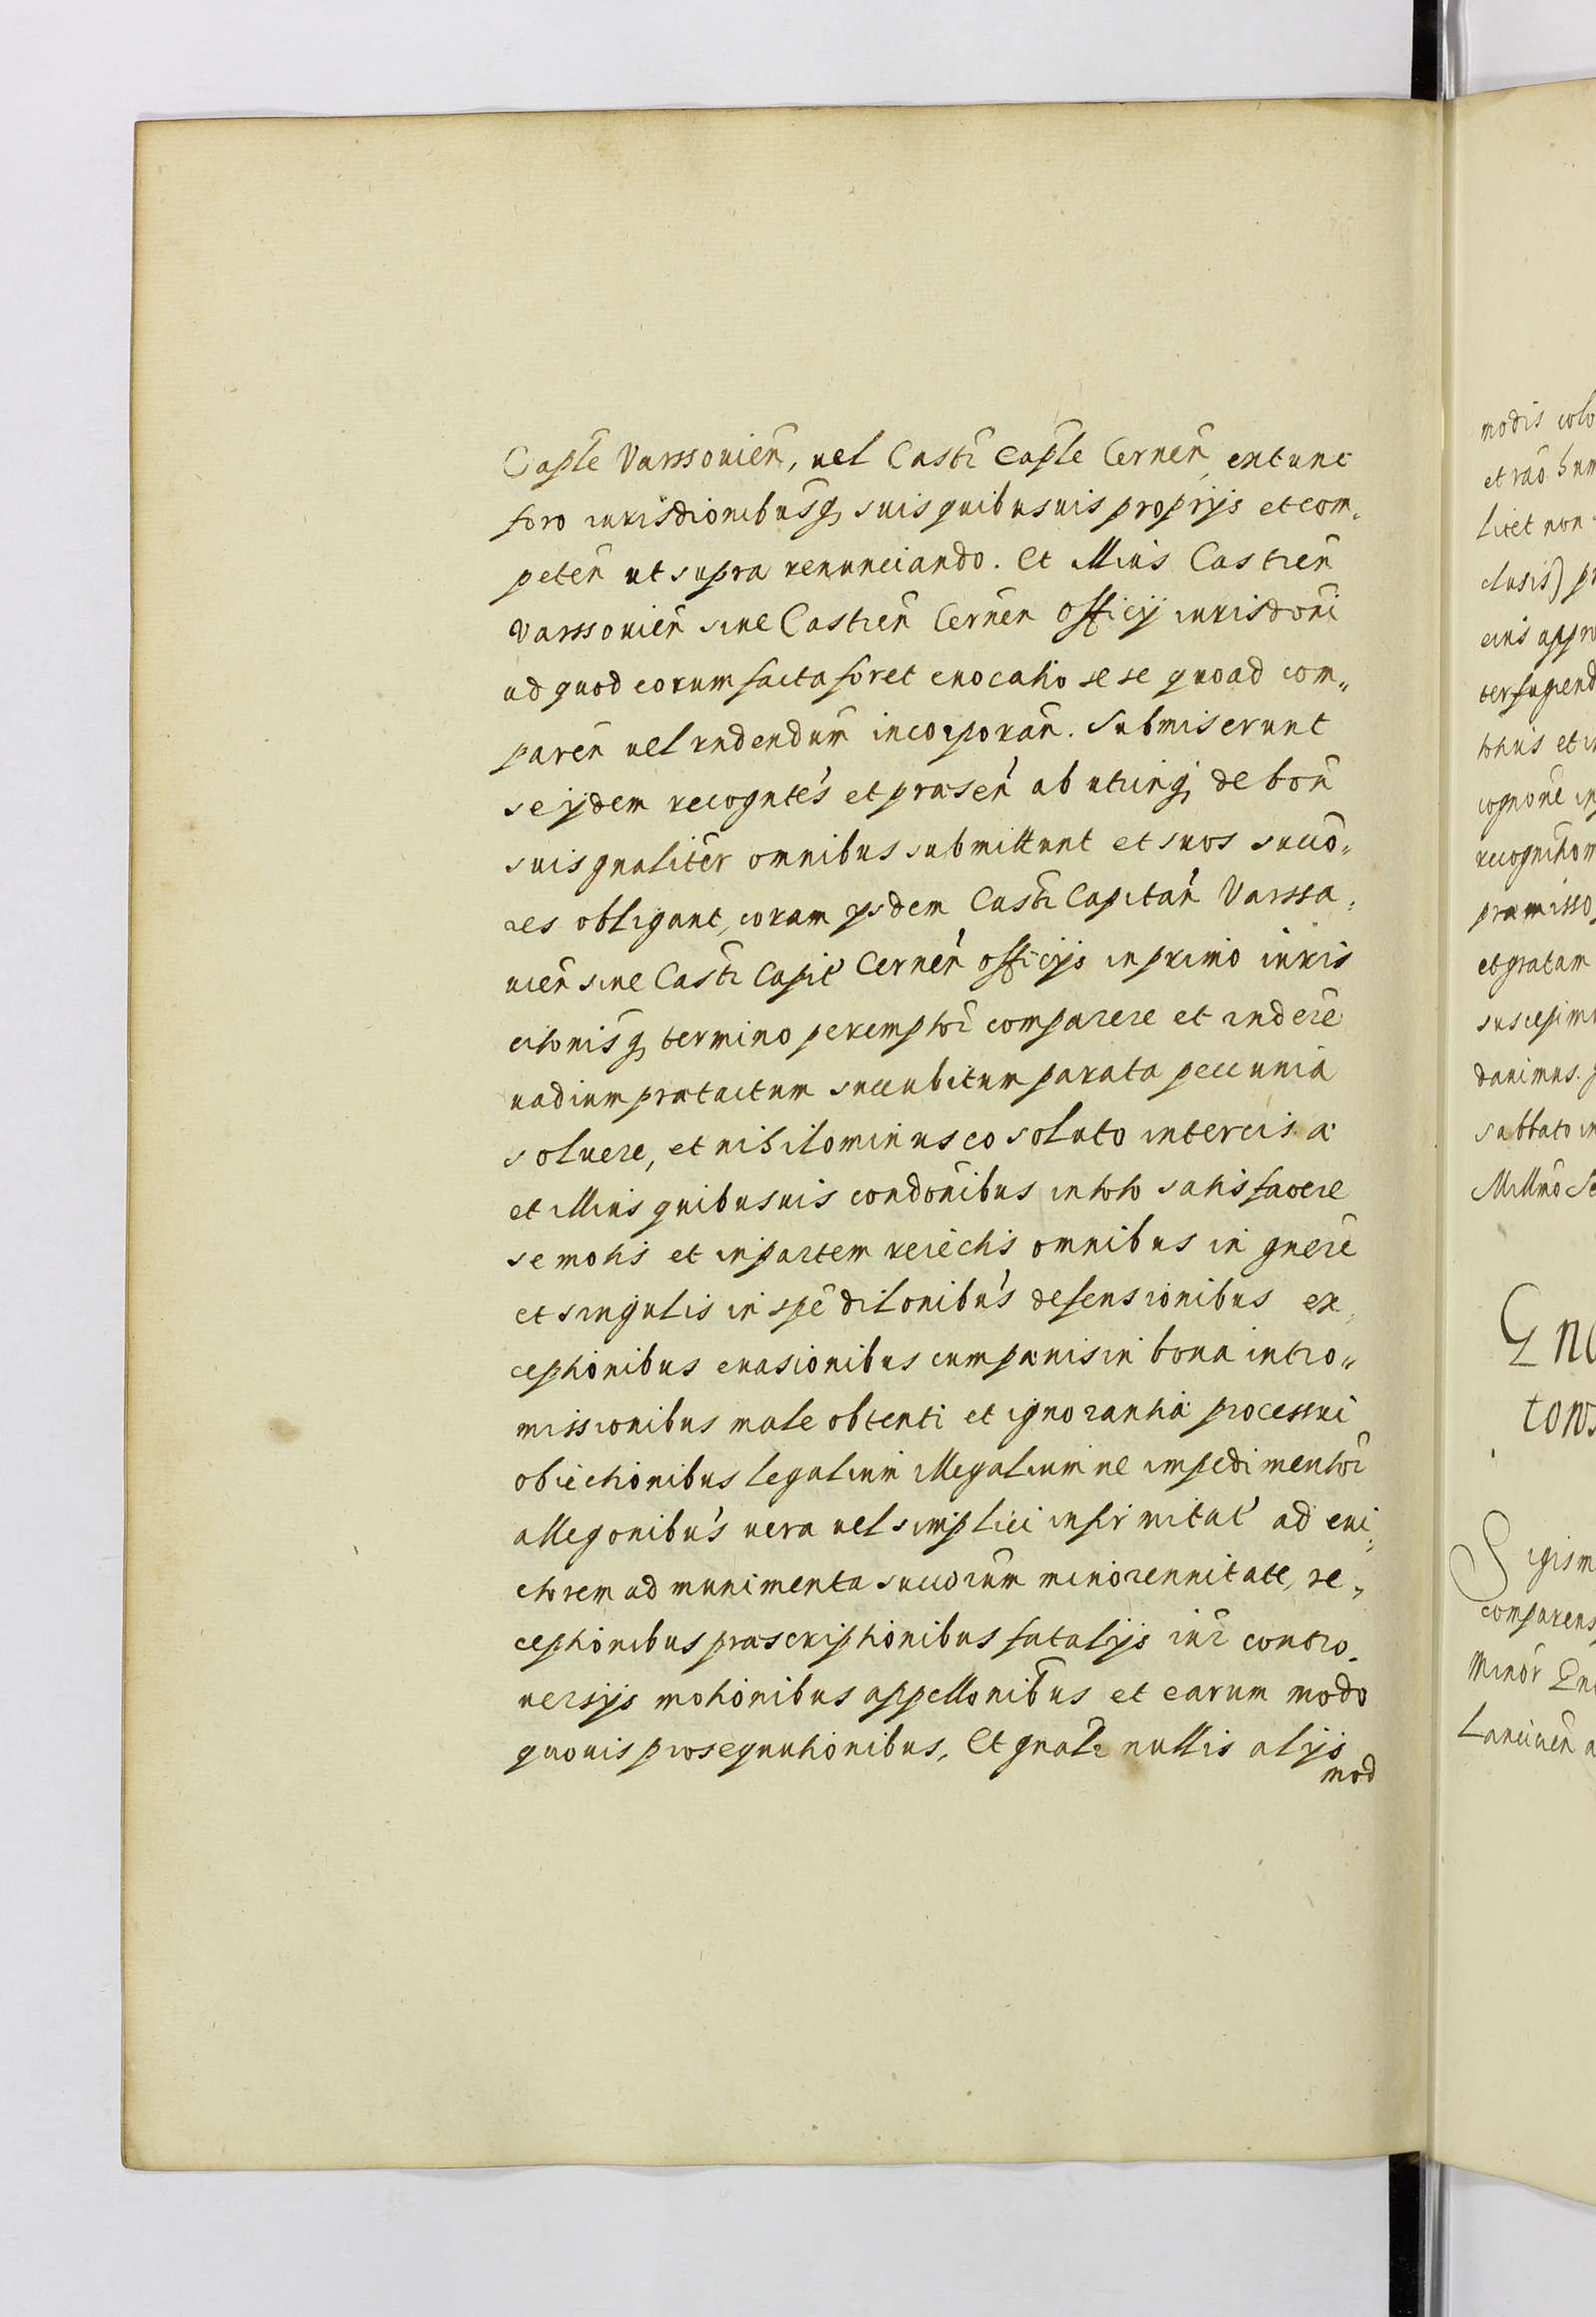 Caple Varssouien, uel Castr Caple Cernen extunc
foro iurisdionibusq suis quibusuis proprijs et com„
peten ut supra renunciando. Et illius Castren
Varssouien siue Castren Cernen Officij iurisdoni
ad quod eorum facta foret euocatio se se quoad com„
paren uel rndendum incorporan. Submiserunt
se ijdem recogntes et præsen ab utrinq de bon
suis gnaliter omnibus submittunt et suos succo„
res obligant, coram ijsdem Castr Capitan Varssa„
uien siue Castr Capit Cernen officijs in primo iuris
citonisq termino peremptor comparere et rndere
uadium prætactum succubitum parata peccunia
soluere, et nihilominus eo soluto intercisæ
et illius quibusuis condonibus in toto satisfacere
semotis et in partem reiectis omnibus in gnere
et singulis in spe dilonibus defensionibus ex„
ceptionibus euasionibus cum panis in bona intro„
missionibus male obtenti et ignorantiæ processui
obiectionibus legalium illegaliumue impedimentor
allegonibus uera uel simplici infirmitat ad eui„
ctorem ad munimenta succorum minorennitate, re„
ceptionibus præscriptionibus fatalijs iur contro„
uersijs motionibus appellonibus et earum modo
quouis prosequutionibus, Et gnalr nullis alijs
mod
modis colo
et rao hum
licet non
clusis) pr
eius appro
terfugiend
tonis et i
cognone in
recognitom
præmisso
et gratam
suscepimu
danimus.
sabbato in
Millmo Se
Eno
tons
Sigism
comparens
Minor Eno
Lanciuien a